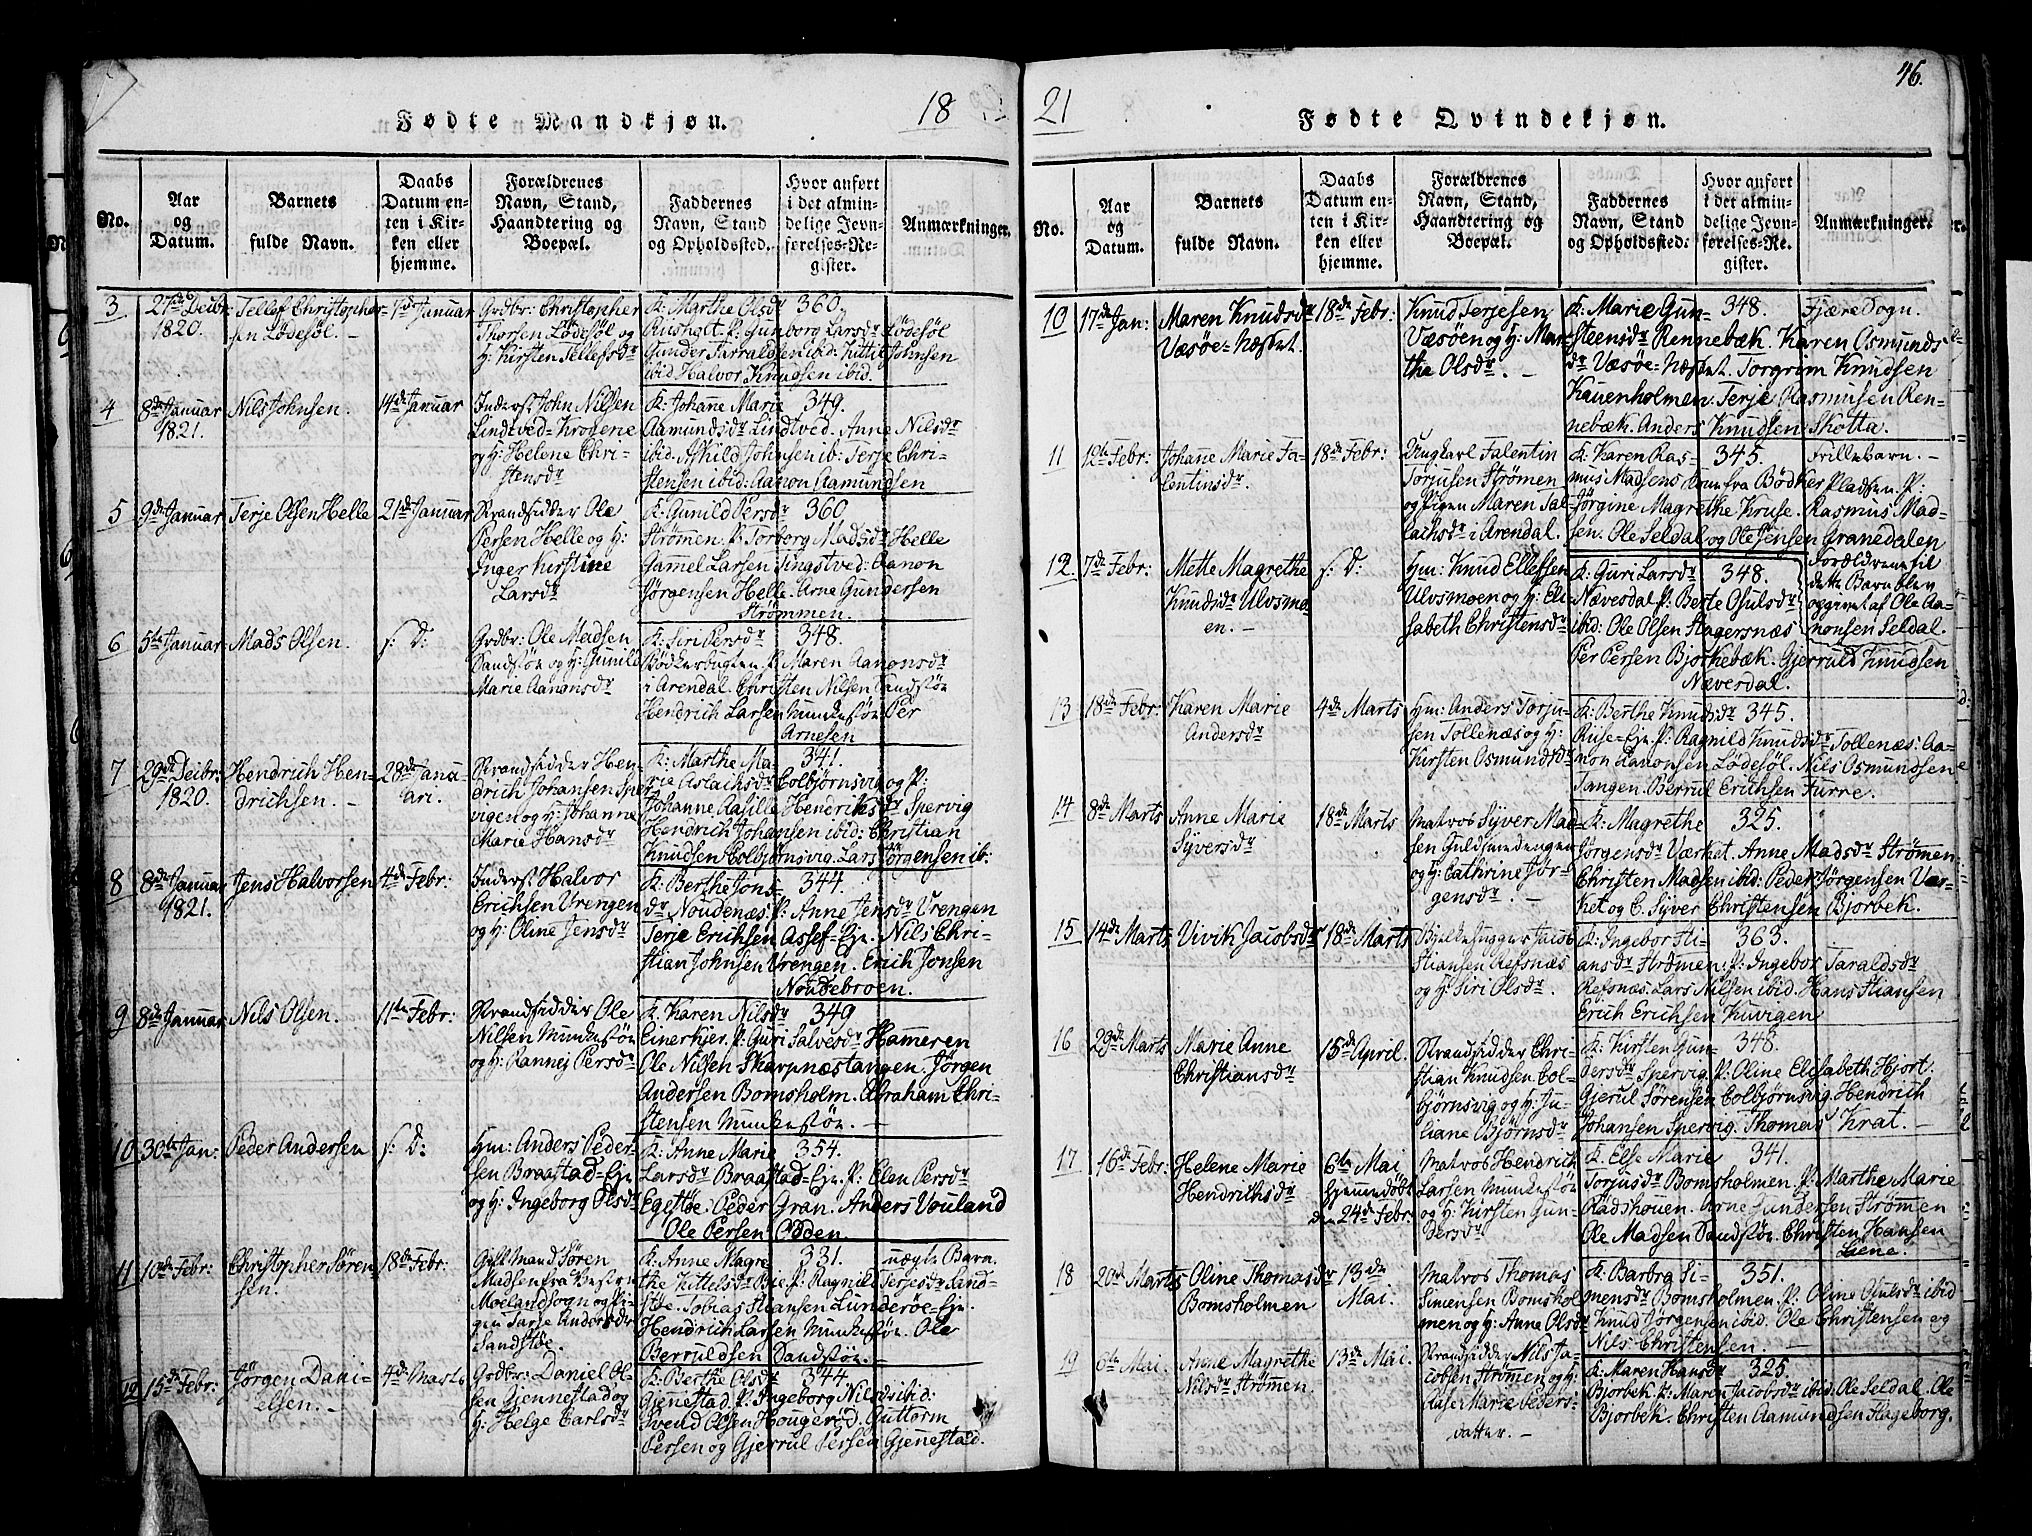 46.
18
21
Fødte Mandkjøn.
No.
Aar og Datum.
Barnets fulde Navn.
Daabs Datum enten i Kirken eller hjemme.
Forældrenes Navn, Stand, Haandtering og Boepæl.
Faddernes Navn, Stand og Opholdssted.
Hvor anført i det almindelige Jevnførelses-Register.
Anmærkninger.
3
27de Decbr: 1820.
Tellef Christophersen Lødesøl. —
1ste Januar
Grdbr: Christopher
Thorsen Lødesøl og
H: Kirsten Tellefsdr
K: Marthe Olsdr 360.
Rusholt. P: Gunborg Larsdr Lødesøl
Gunder Tarraldsen ibid: Kittil Johnsen
ibid Halvor Knudsen ibid.
4
8de Januar 1821.
Nils Johnsen.
14de Januar
Inderst John Nilsen
Lindtved-Krogene
og H: Helene Christensdr
K: Johane Marie 349.
Aamundsdr Lindtved. Anne Nilsdr
ibid. Askild Johnsen ib: Terje Christensen ibid: Aanon Aamundsen
5
9de Januar
Terje Olsen Helle
21de Januar
Strandsidder Ole
Persen Helle og H:
Inger Kirstine
Larsdr
K: Gunild Persdr 360
Strømen. P: Torborg Madsdr Helle
Gamel Larsen Tingstved: Aanon
Jørgensen Helle. Arne Gundersen
Strømmen.
6
5te Januar
Mads Olsen.
s: D:
Grdbr: Ole Madsen
Sandstøe og H: Gunild
Marie Aanonsdr
K: Siri Persdr 348.
Bødkerbugten. P: Maren Aanonsdr
i Arendal. Christen Nilsen Sandstøe
Hendrich Larsen Munkestøe Per
Arnesen
7
29de Decbr: 1820.
Hendrich Hendrichsen. —
28de Januari.
Strandsidder Hendrich Johansen Spervigen og H: Johanne
Marie Hansdr
K: Marthe Ma- 341.
rie Aslachsdr Colbjørnsvig og P:
Johanne Aasille Hendriksdr Spervig
Hendrich Johansen ibid: Christian
Knudsen Colbjørnsvig. Lars Jørgensen ib:
8
8de Januar 1821.
Jens Halvorsen
4de Febr:
Inderst Halvor
Erichsen Vrengen
og H: Oline Jensdr
K: Berthe Jons- 344.
dr Noudenæs. P: Anne Jensdr Vrengen
Terje Erichsen Assef-Eje. Nils Christian Johnsen Vrengen. Erich Jonsen
Noudebroen.
9
8de Januar
Nils Olsen.
11te Febr:
Strandsidder Ole
Nilsen Munkestøe
og H: Rannej Persdr
K: Karen Nilsdr 349
Einerkjer. P: Guri Salvesdr Hammeren
Ole Nilsen Skarpnæstangen. Jørgen
Andersen Bomsholm. Abraham Christensen Munkestøe. —
10
30te Jan:
Peder Andersen
s: D:
Hm: Anders Pedersen Braastad-Eje
og H: Ingeborg Olsdr
K: Anne Marie 354.
Larsdr Braastad-Eje. P: Elen Persdr
Egestøe. Peder Gran. Anders Vouland
Ole Persen Odden.
11
10de Febr:
Christopher Sørensen.
18de Febr:
Gift mand Søren
Madsen fra Vester
Moeland sogn og Pigen Andersdr
Sandstøe.
K: Anne Magre- 331. uægte Barn.
the Kittelsdr P: Ragnild Terjesdr Sandstøe. Tobias Stiansen Lunderøe-Eje.
Hendrich Larsen Munkestøe. Ole
Berruldsen Sandstøe. —
12
15de Febr:
Jørgen Danielsen. —
4de Marts
Grdbr: Daniel Olsen Gjennestad og
H: Helge Carlsdr
K: Berthe Olsdr 344.
Gjenestad. P: Ingeborg Nilsdr ibid.
Svend Olsen Hougerød. Guttorm
Persen og Gjerrul Persen Gjenestad.
Fødte Qvindekjøn.
No.
Aar og Datum.
Barnets fulde Navn.
Daabs Datum enten i Kirken eller hjemme.
Forældrenes Navn, Stand, Haandtering og Boepæl.
Faddernes Navn, Stand og Opholdssted:
Hvor anført i det almindelige Jevnførelses-Register.
Anmærkninger.
10
17de Jan:
Maren Knudsdr
Væsøe-Næsset.
18de Febr:
Knud Terjesen
Væsøen og H: Marthe Olsdr. —
K: Marie Gun- 348. Fjære Sogn.
steensdr Rennebæk. Karen Osmundsdr Væsøe-Næsset. Torgrim Knudsen
Kauenholmen. Terje Rasmusen Rennebæk. Anders Knudsen Skotta.
11
12te Febr:
Johane Marie Falentinsdr.
18de Febr:
Ungkarl Falentin
Torjusen Strømen
og Pigen Maren Salachsdr i Arendal.
K: Karen Ras- 345. Frillebarn. —
mus Madsens Kone fra Bødker Pladsen P:
Jørgine Magrethe Kruse. Rasmus Madsen. Ole Seldal og Ole Jensen Granedalen
12
7de Febr:
Mette Magrethe
Knudsdr Ulvsmoen. —
s: D:
Hm: Knud Ellefsen
Ulvsmoen og H: Elisabeth Christensdr
K: Guri Larsdr 348.
Nævesdal P: Berte Osulsdr
ibid: Ole Olsen Stagersnæs
Per Persen Bjorkebæk. Gjerruld Knudsen
Næversdal.
Forældrene til
dette Barn blev
opgivet af Ole Aamonsen Seldal.
13
18de Febr:
Karen Marie
Andersdr
4de Marts
Hm: Anders Torjusen Tollenæs og H:
Kirsten Osmundsdr
K: Berthe Knudsdr 345.
Ruse-Eje. P: Ragnild Knudsdr Tollenæs: Aamon Aanonsen Lødesøl. Nils Osmundsen
Tangen. Berrul Erichsen Furre.
14
8de Marts
Anne Marie
Syversdr
18de Marts
Matros Syver Madsen Guldsmedengen
og H: Cathrine Jørgensdr. —
K: Magrethe 325.
Jørgensdr Værket. Anne Madsdr Strømen:
Christen Madsen ibid: Peder Jørgensen Værket og C. Syver Christensen Bjorbek.
15
14de Marts
Vivik Jacobsdr
18de Marts
Bjelkehugger Jacob
Stiansen Refsnæs
og H: Siri Olsdr.
K: Ingebor Sti- 363.
ansdr Strømen. P: Ingebor Taraldsdr
Refsnæs. Lars Nilsen ibid. Hans Stiansen
Erich Erichsen Kuvigen
16
23de Marts
Marie Anne
Christiansdr
15de April.
Strandsidder Christian Knudsen Colbjørnsvig og H: Juliane Bjørnsdr
K: Kirsten Gun- 348.
dersdr Spervig. P: Oline Elisabeth Hjort.
Gjerul Sørensen Colbjørnsvig Hendrich
Johansen Spervig. Thomas Krat. —
17
16de Febr:
Helene Marie
Hendrichsdr
6te Mai
hjemmedøbt
d. 24de Febr:
Matros Hendrich
Larsen Munkestøe
og H: Kirsten Gundersdr
K: Else Marie 341.
Torjusdr Bomsholmen. P: Marthe Marie
Rådshouen. Arne Gundersen Strømen
Ole Madsen Sandstøe. Christen Hansen
Liene.
18
20de Marts
Oline Thomasdr
Bomsholmen
13de Mai.
Matros Thomas
Simensen Bomsholmen og H: Anne Olsdr
K: Barbra Si- 351.
mensdr Bomsholmen. P. Oline Osulsdr ibid
Knud Jørgensen ibid. Ole Christensen og
Nils Christensen. —
19
6te Mai.
Anne Magrethe
Nilsdr Strømen.
13de Mai.
Strandsidder Nils Jacobsen Strømen og H:
Marie Pedersdatter. —
K: Maren Hansdr 325.
Bjorbek. P: Maren Jacobsdr ibid. Ole Seldal. Ole
Bjorbek. Christen Aamundsen Hageborg.